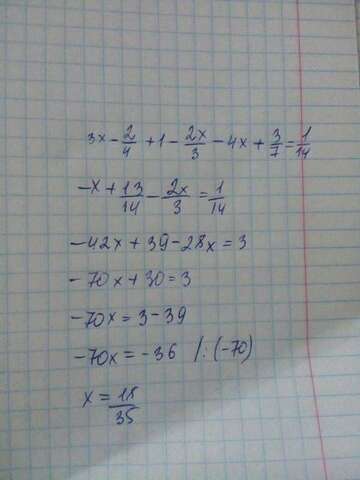 3x - 2/4 + 1 - 2x/3 - 4x + 3/7 = 1/14
-x + 13/14 - 2x/3 = 1/14
-42x + 39 - 28x = 3
-70x + 30 = 3
-70x = 3 - 39
-70x = -36 /: (-70)
x = 18/35